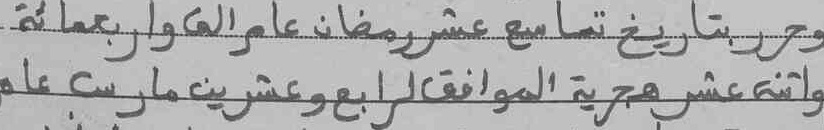 وحرر بتاريخ تاسع عشر رمضان عام الف واربعمائة
واثنى عشر هجرية الموافق لرابع وعشرين مارس عام